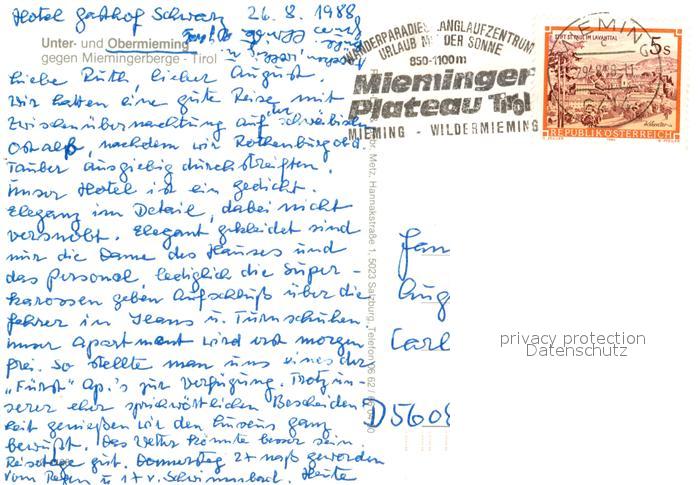 Hotel Gasthof Schwarz 26.8.1988
Unter- und Obermieming
gegen Miemingerberge - Tirol
Liebe Ruth, lieber August,
wir hatten eine gute Reise mit
Zwischenübernachtung auf schwäbisch
Ostalb, nachdem wir Rothenburg o.d.
Tauber ausgiebig durchstreiften.
Unser Hotel ist ein Gedicht.
Eleganz im Detail, dabei nicht
versnobt. Elegant gekleidet sind
nur die Dame des Hauses und
das Personal, lediglich die Super-
karossen geben Aufschluß über die
Fahrer in Jeans u. Turnschuhen.
Unser Apartment wird erst morgen
frei. So stellte man uns eines der
"Fürst" Ap.'s zur Verfügung. Trotz un-
serer eher sprichwörtlichen Bescheiden-
heit genießen wir den Luxus ganz
bewußt. Das Wetter könnte besser sein.
Reisetage gut. Donnerstag 2x naß geworden
vom Regen u. 1x v. Schwimmbad. Heute
WANDERPARADIES LANGLAUFZENTRUM
URLAUB MIT DER SONNE
850-1100 m
Mieminger
Plateau Tirol
MIEMING - WILDERMIEMING
MIEMING
STIFT ST. PAUL IM LAVANTTAL
5S
REPUBLIK ÖSTERREICH
Metz, Hannakstraße 1, 5023 Salzburg, Telefon 06 62 /
Fam
Aug
Carl
D 5609
privacy protection
Datenschutz